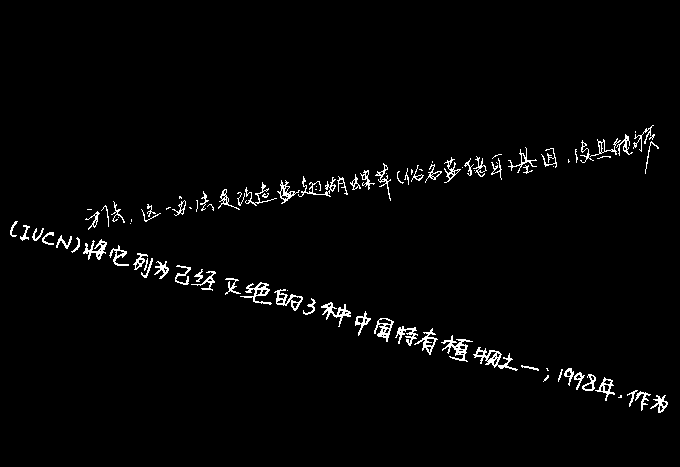 方法,这一办法是改造蓝翅蝴蝶草(俗名蓝猪耳)基因,使其能够
(IUCN)将它列为已经灭绝的3种中国特有植物之一;1998年,作为